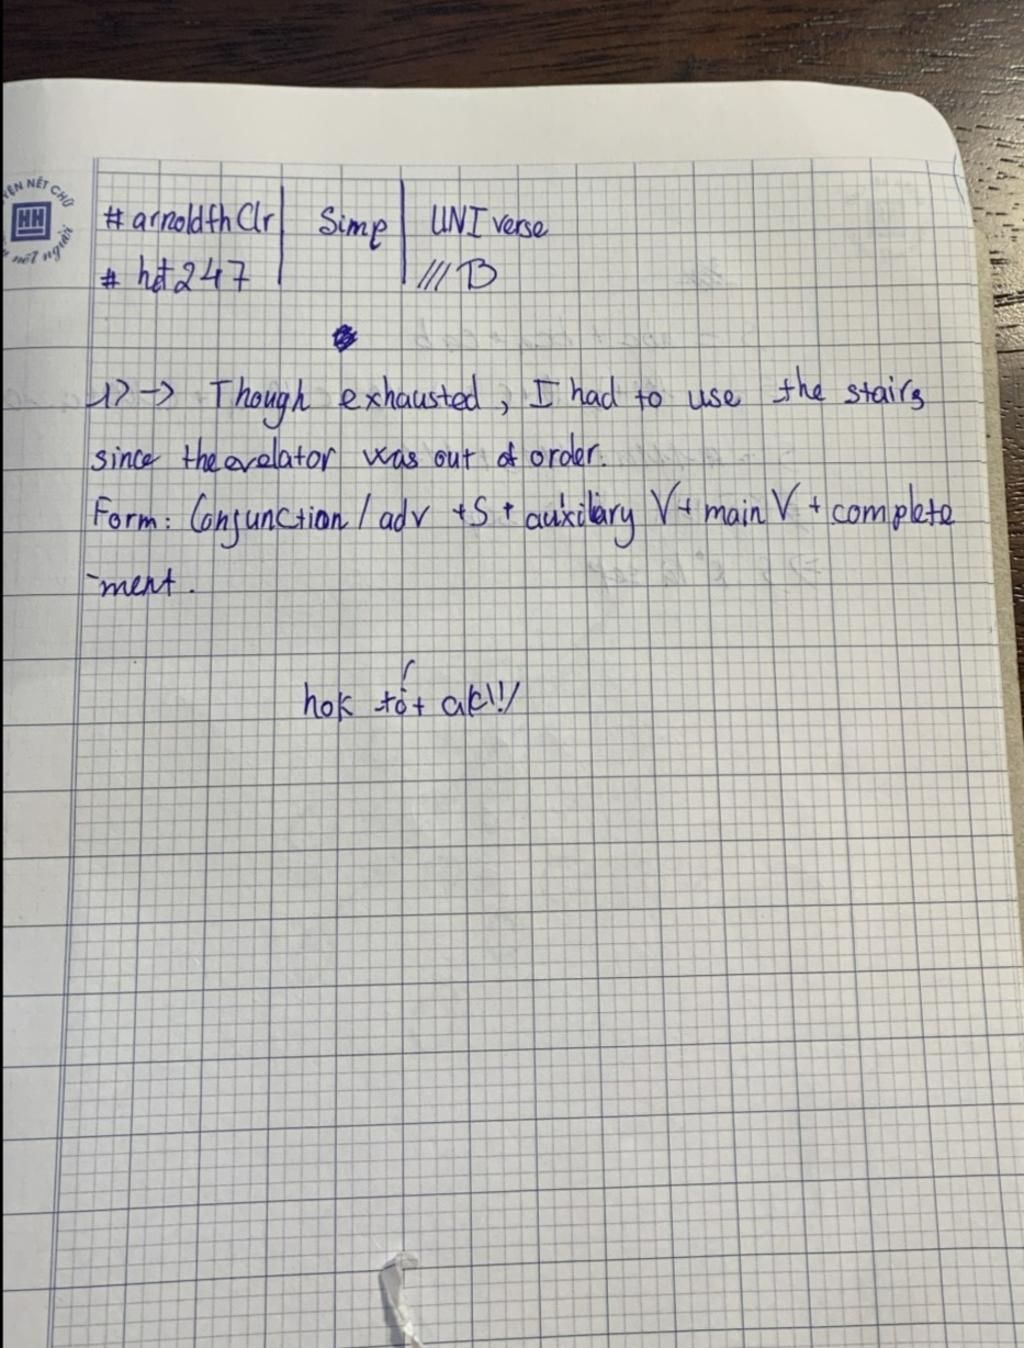 YỆN NÉT CHỮ
HH
nết người
#arnoldthClr | Simp | UNI verse
# hdt247 | /// B
1> -> Though exhausted, I had to use the stairs
since the evelator was out of order.
Form: Conjunction / adv + S + auxiliary V + main V + complete
-ment.
hok tốt ak!!!